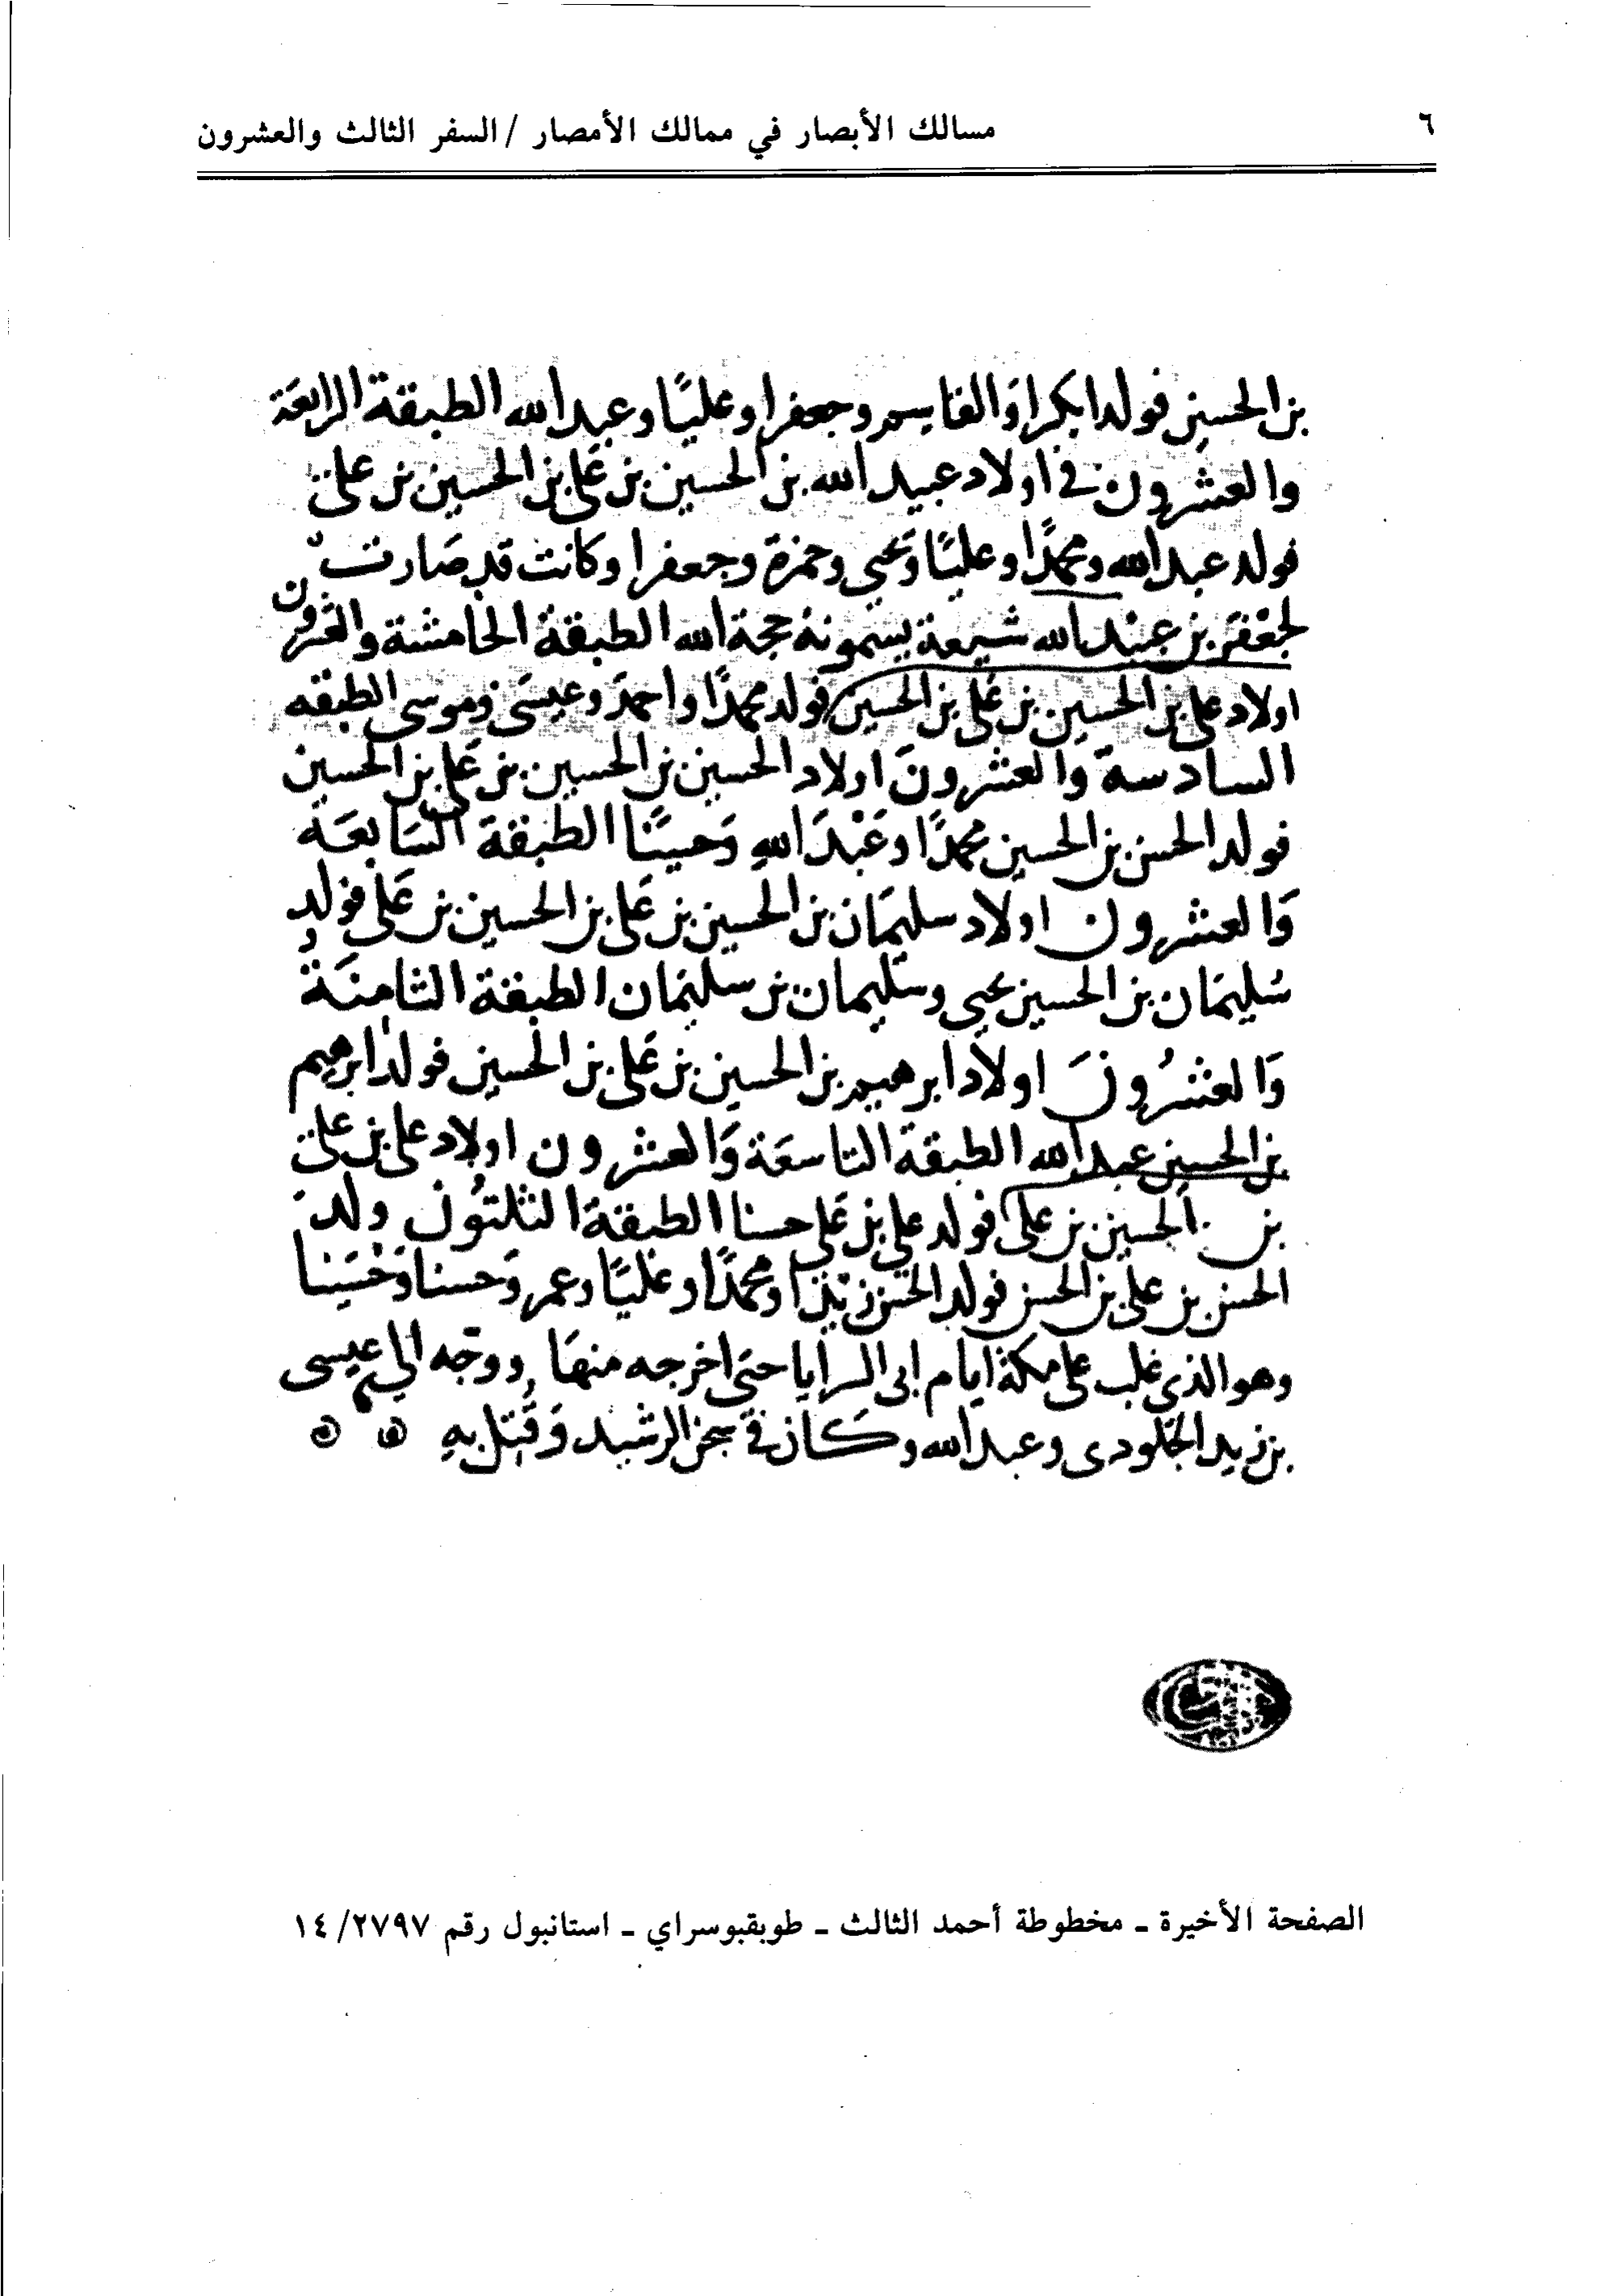 ٦
مسالك الأبصار في ممالك الأمصار / السفر الثالث والعشرون
بن الحسين فولد ابكرا والقاسم وجعفرا وعليًا وعبد الله الطبقة الرابعة
والعشرون في اولاد عبيد الله بن الحسين بن علي بن الحسين بن علي
فولد عبد الله ومحمدًا وعليًا ويحيى وحمزة وجعفرا وكانت قد صارت
لجعفر بن عبد الله شيعة يسمونه حجة الله الطبقة الخامسة والعشرون
اولاد علي بن الحسين بن علي بن الحسين فولد محمدًا واحمد وعيسى وموسى الطبقه
السادسة والعشرون اولاد الحسين بن الحسين بن علي بن الحسين
فولد الحسن بن الحسين محمدًا وعَبْدَ اللهِ وحسينًا الطبقة السَابعَة
وَالعشرون اولاد سليمَان بن الحسين بن علي بن الحسين بن علي فولد
سُليمَان بن الحسين يحيى وسليمان بن سليمَان الطبقة الثامنَة
وَالعشرُونَ اولاد ابرهيم بن الحسين بن علي بن الحسين فولد ابرهيم
بن الحسين عبد الله الطبقة التاسعَة وَالعشرون اولاد علي بن علي
بن الحسين بن علي فولد علي بن علي حسنا الطبقة الثلثون ولد
الحسن بن علي بن الحسن فولد الحسن زيدًا ومحمدًا وعليًا وعمر وَحسنا وَحُسَينا
وهو الذي غلب على مكة ايام ابى السرايا حتى اخرجه منهَا ووجه الى عيسى
بن زيد الجلودى وعبد الله وكان في سجن الرشيد وَقُتِل بهِ ه ه
الصفحة الأخيرة - مخطوطة أحمد الثالث - طوبقبوسراي - استانبول رقم ٢٧٩٧/ ١٤